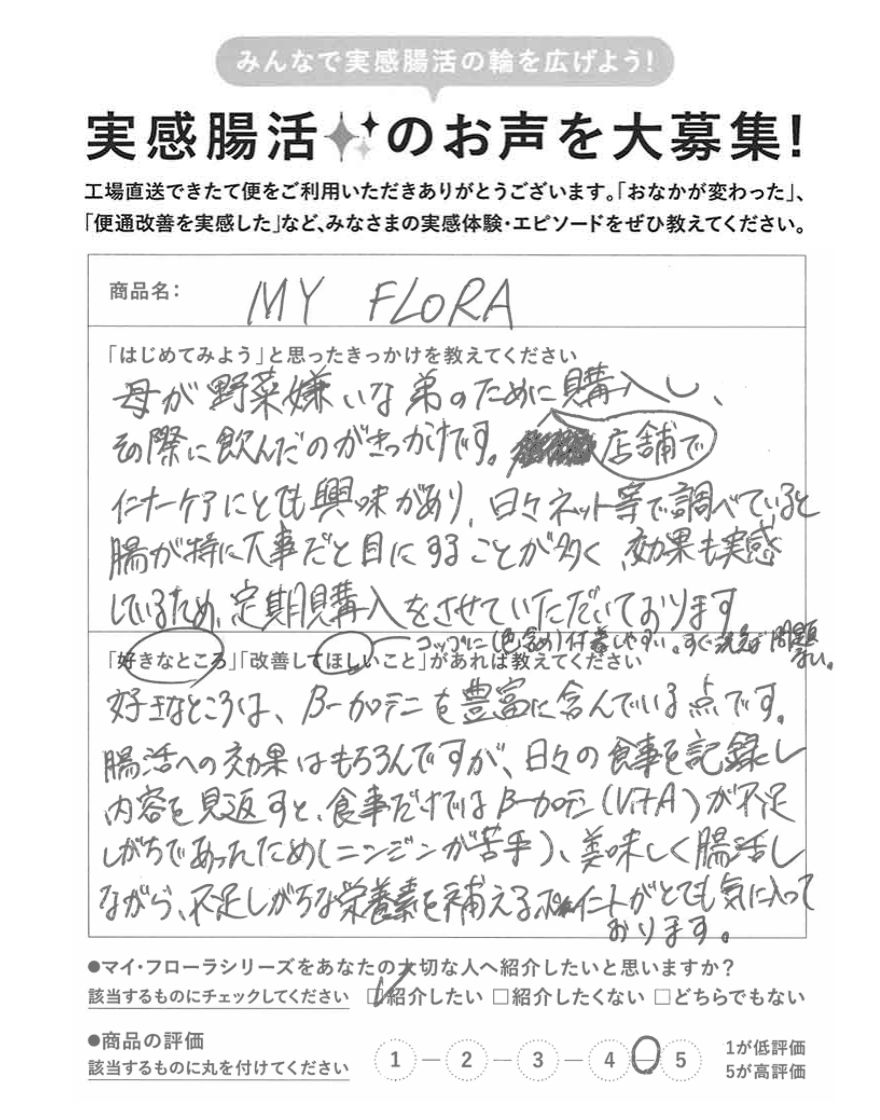 みんなで実感腸活の輪を広げよう!
実感腸活のお声を大募集!
工場直送できたて便をご利用いただきありがとうございます。「おなかが変わった」、
「便通改善を実感した」など、みなさまの実感体験・エピソードをぜひ教えてください。
商品名: MY FLORA
「はじめてみよう」と思ったきっかけを教えてください
母が野菜嫌いな弟のために購入し、
その際に飲んだのがきっかけです。 店舗で
インナーケアにとても興味があり、日々ネット等で調べていると
腸が特に大事だと目にすることが多く、効果も実感
しているため、定期購入をさせていただいております
コップに(色含め)付着しやすい。すぐ洗えば問題
ない。
「好きなところ」「改善してほしいこと」があれば教えてください
好きなところは、β-カロテンを豊富に含んでいる点です。
腸活への効果はもちろんですが、日々の食事を記録し
内容を見返すと、食事だけではβ-カロテン(VitA)が不足
しがちであったため(ニンジンが苦手)、美味しく腸活し
ながら、不足しがちな栄養素を補えるポイントがとても気に入って
おります。
●マイ・フローラシリーズをあなたの大切な人へ紹介したいと思いますか?
該当するものにチェックしてください ☑紹介したい □紹介したくない □どちらでもない
●商品の評価
該当するものに丸を付けてください 1 — 2 — 3 — 4 — 5 1が低評価
5が高評価